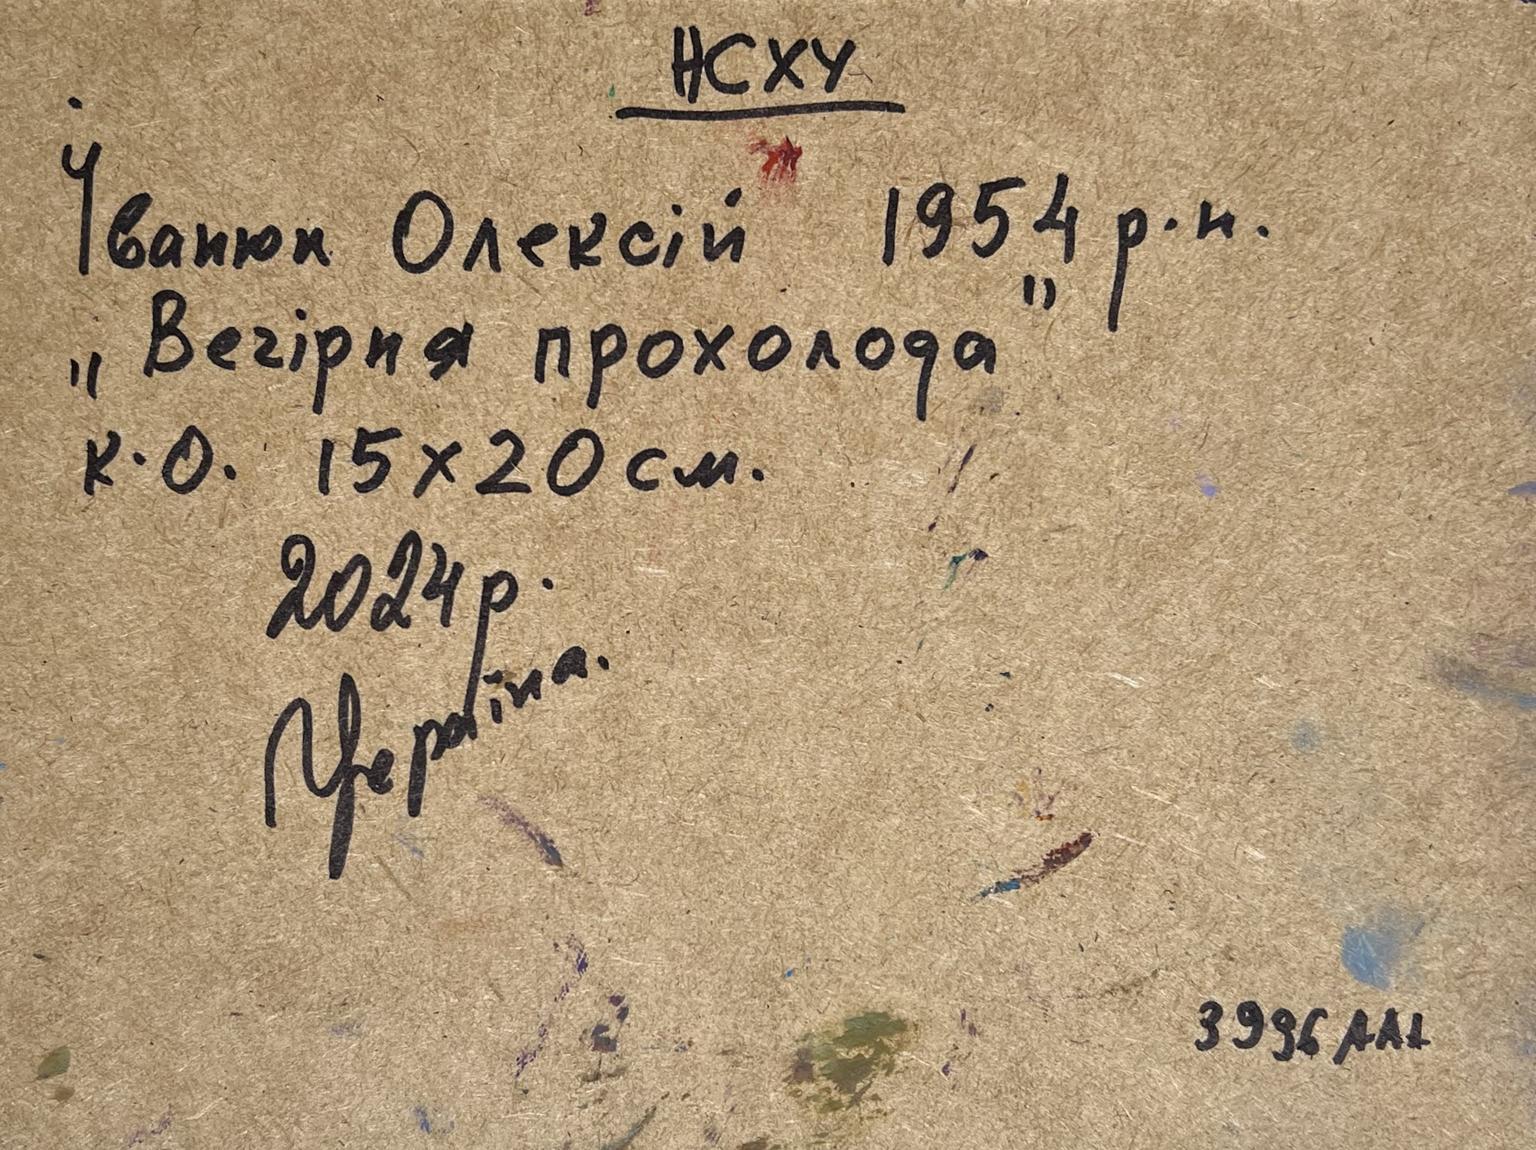 НСХУ
Іванюк Олексій 1954 р.н.
„Вечірня прохолода"
к.о. 15х20см.
2024р.
Україна.
3996 AAL